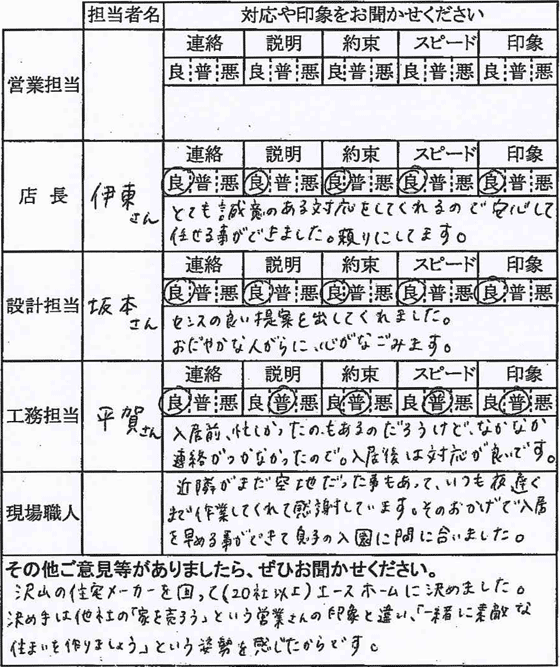 担当者名 対応や印象をお聞かせください
営業担当
連絡 説明 約束 スピード 印象
良 普 悪 良 普 悪 良 普 悪 良 普 悪 良 普 悪
店長 伊東さん
連絡 説明 約束 スピード 印象
良 普 悪 良 普 悪 良 普 悪 良 普 悪 良 普 悪
とても誠意のある対応をしてくれるので安心して
任せる事ができました。頼りにしてます。
設計担当 坂本さん
連絡 説明 約束 スピード 印象
良 普 悪 良 普 悪 良 普 悪 良 普 悪 良 普 悪
センスの良い提案を出してくれました。
おだやかな人がらに、心がなごみます。
工務担当 平賀さん
連絡 説明 約束 スピード 印象
良 普 悪 良 普 悪 良 普 悪 良 普 悪 良 普 悪
入居前、忙しかったのもあるのだろうけど、なかなか
連絡がつかなかったので。入居後は対応が良いです。
現場職人
近隣がまだ空地だった事もあって、いつも夜遅く
まで作業してくれて感謝しています。そのおかげで入居
を早める事ができて息子の入園に間に合いました。
その他ご意見等がありましたら、ぜひお聞かせください。
沢山の住宅メーカーを回って(20社以上)エースホームに決めました。
決め手は他社の「家を売ろう」という営業さんの印象と違い、「一緒に素敵な
住まいを作りましょう」という姿勢を感じたからです。